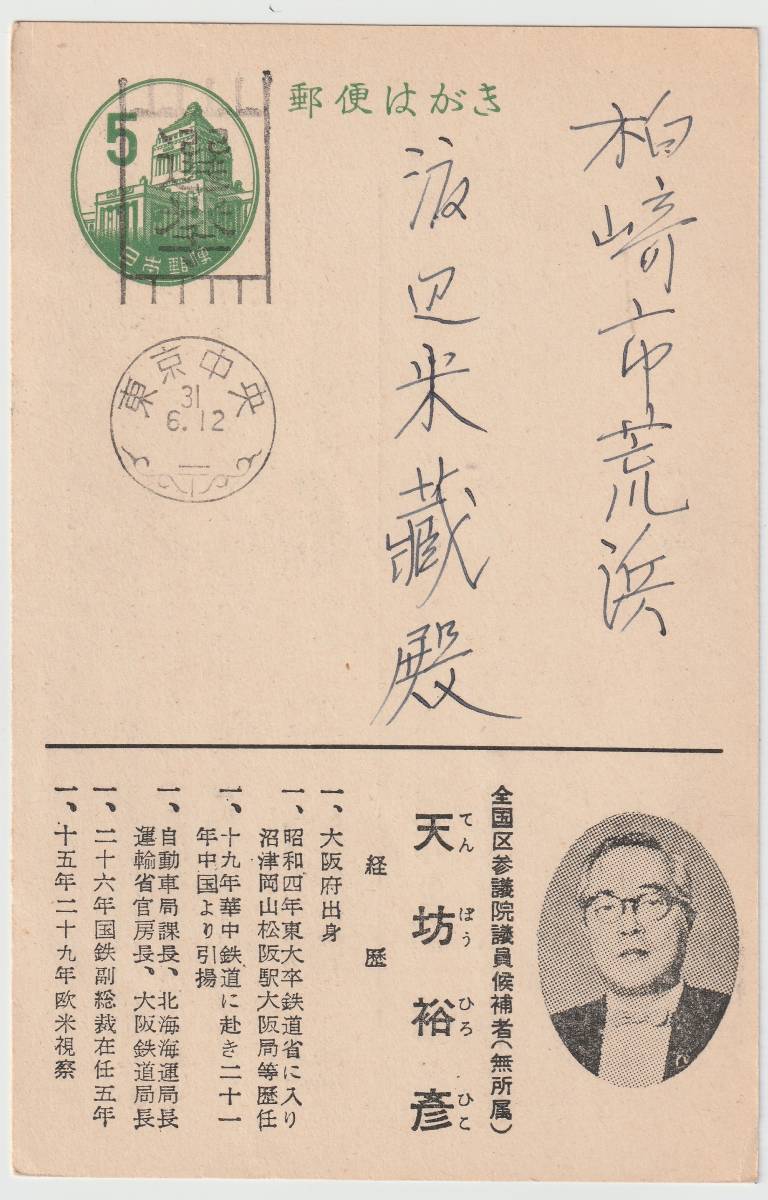 郵便はがき
5
日本郵便
東京中央
31
6.12
柏崎市荒浜
渡辺米蔵殿
全国区参議院議員候補者(無所属)
天坊裕彦
てんぼうひろひこ
経歴
一、大阪府出身
一、昭和四年東大卒鉄道省に入り
沼津岡山松阪駅大阪局等歴任
一、十九年華中鉄道に赴き二十一
年中国より引揚
一、自動車局課長、北海海運局長
運輸省官房長、大阪鉄道局長
一、二十六年国鉄副総裁在任五年
一、十五年二十九年欧米視察